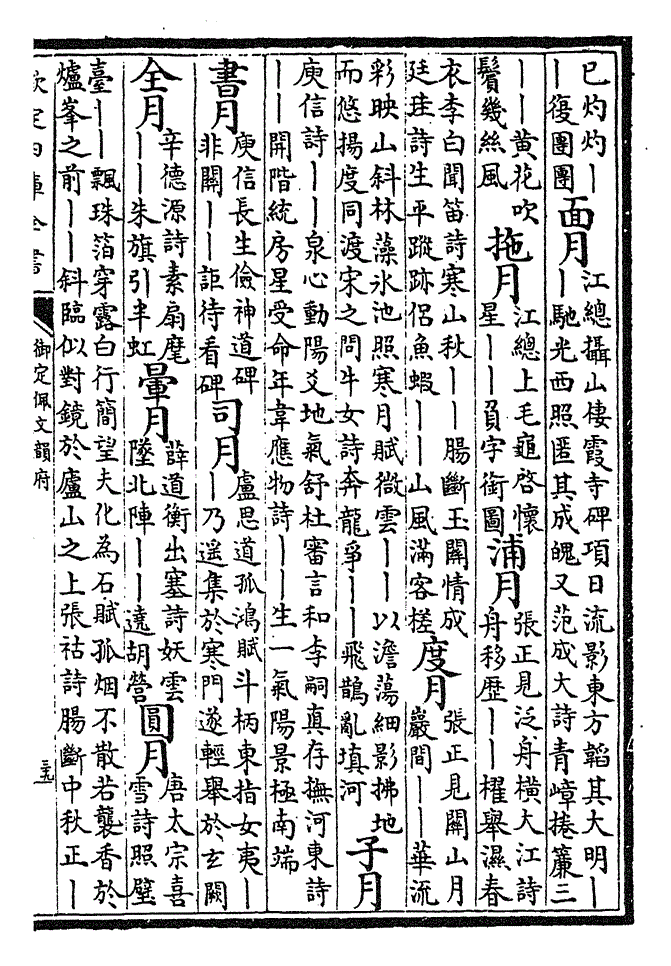 已灼灼丨
丨復團團
面月
江總攝山棲霞寺碑項日流影東方韜其大明丨
丨馳光西照匿其成魄又范成大詩青嶂捲簾三
丨丨黃花吹
鬢幾絲風
拖月
江總上毛龜啓懷
星丨丨負字銜圖
浦月
張正見泛舟橫大江詩
舟移歷丨丨櫂舉濕春
衣李白聞笛詩寒山秋丨丨腸斷玉關情成
廷珪詩生平蹤跡侶魚蝦丨丨山風滿客槎
度月
張正見關山月
巖間丨丨華流
彩映山斜林藻氷池照寒月賦微雲丨丨以澹蕩細影拂地
而悠揚度同渡宋之問牛女詩奔龍爭丨丨飛鵲亂填河
子月
庾信詩丨丨泉心動陽爻地氣舒杜審言和李嗣真存撫河東詩
丨丨開階統房星受命年韋應物詩丨丨生一氣陽景極南端
書月
庾信長生儉神道碑
非關丨丨詎待看碑
司月
盧思道孤鴻賦斗柄東指女夷丨
丨乃遥集於寒門遂輕舉於玄闕
全月
辛德源詩素扇麾
丨丨朱旗引半虹
暈月
薛道衡出塞詩妖雲
墜北陣丨丨遶胡營
圓月
唐太宗喜
雪詩照璧
臺丨丨飄珠箔穿露白行簡望夫化為石賦孤烟不散若襲香於
爐峯之前丨丨斜臨似對鏡於廬山之上張祜詩腸斷中秋正丨
欽定四庫全書
御定佩文韻府
三五